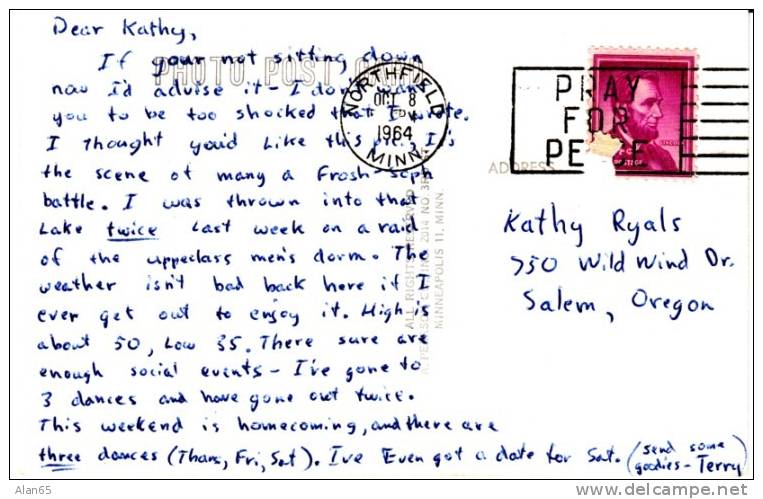 Dear Kathy,
If your not sitting down
now I'd advise it - I don't want
you to be too shocked that I wrote.
I thought you'd Like this pic., It's
the scene of many a Frosh-soph
battle. I was thrown into that
Lake twice Last week on a raid
of the uppeclass men's dorm. The
weather isn't bad back here if I
ever get out to enjoy it. High is
about 50, Low 35. There sure are
enough social events - I've gone to
3 dances and have gone out twice.
This weekend is homecoming, and there are
three dances (Thurs, Fri, Sat). I've Even got a date for Sat. (send some
goodies - Terry)
PHOTO POST CARD
NORTHFIELD
OCT 8
PM
1964
MINN.
PRAY
FOR
PEACE
LINCOLN
ADDRESS
Kathy Ryals
750 Wild Wind Dr.
Salem, Oregon
ALL RIGHTS RESERVED
MINNEAPOLIS 11, MINN.
Alan65
http://www.delcampe.net